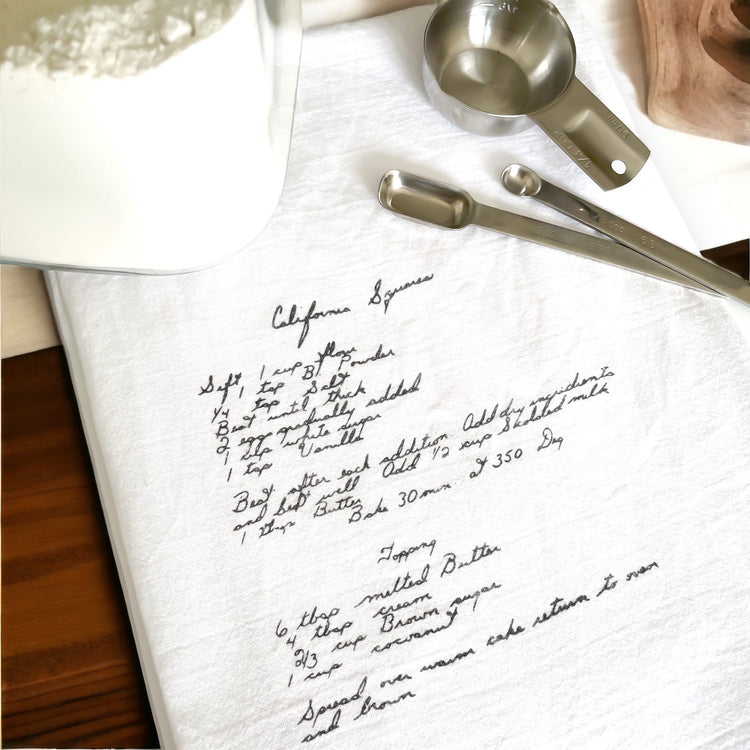 California Squares
Sift 1 cup flour
1 tsp B. Powder
1/4 tsp Salt
Beat until thick
2 eggs gradually added
1 cup white sugar
1 tsp Vanilla
Beat after each addition. Add dry ingredients
and beat well Add 1/2 cup Scalded milk
1 tbsp Butter
Bake 30 min. at 350 Deg
Topping
6 tbsp melted Butter
4 tbsp cream
2/3 cup Brown sugar
1 cup cocoanut
Spread over warm cake return to oven
and brown